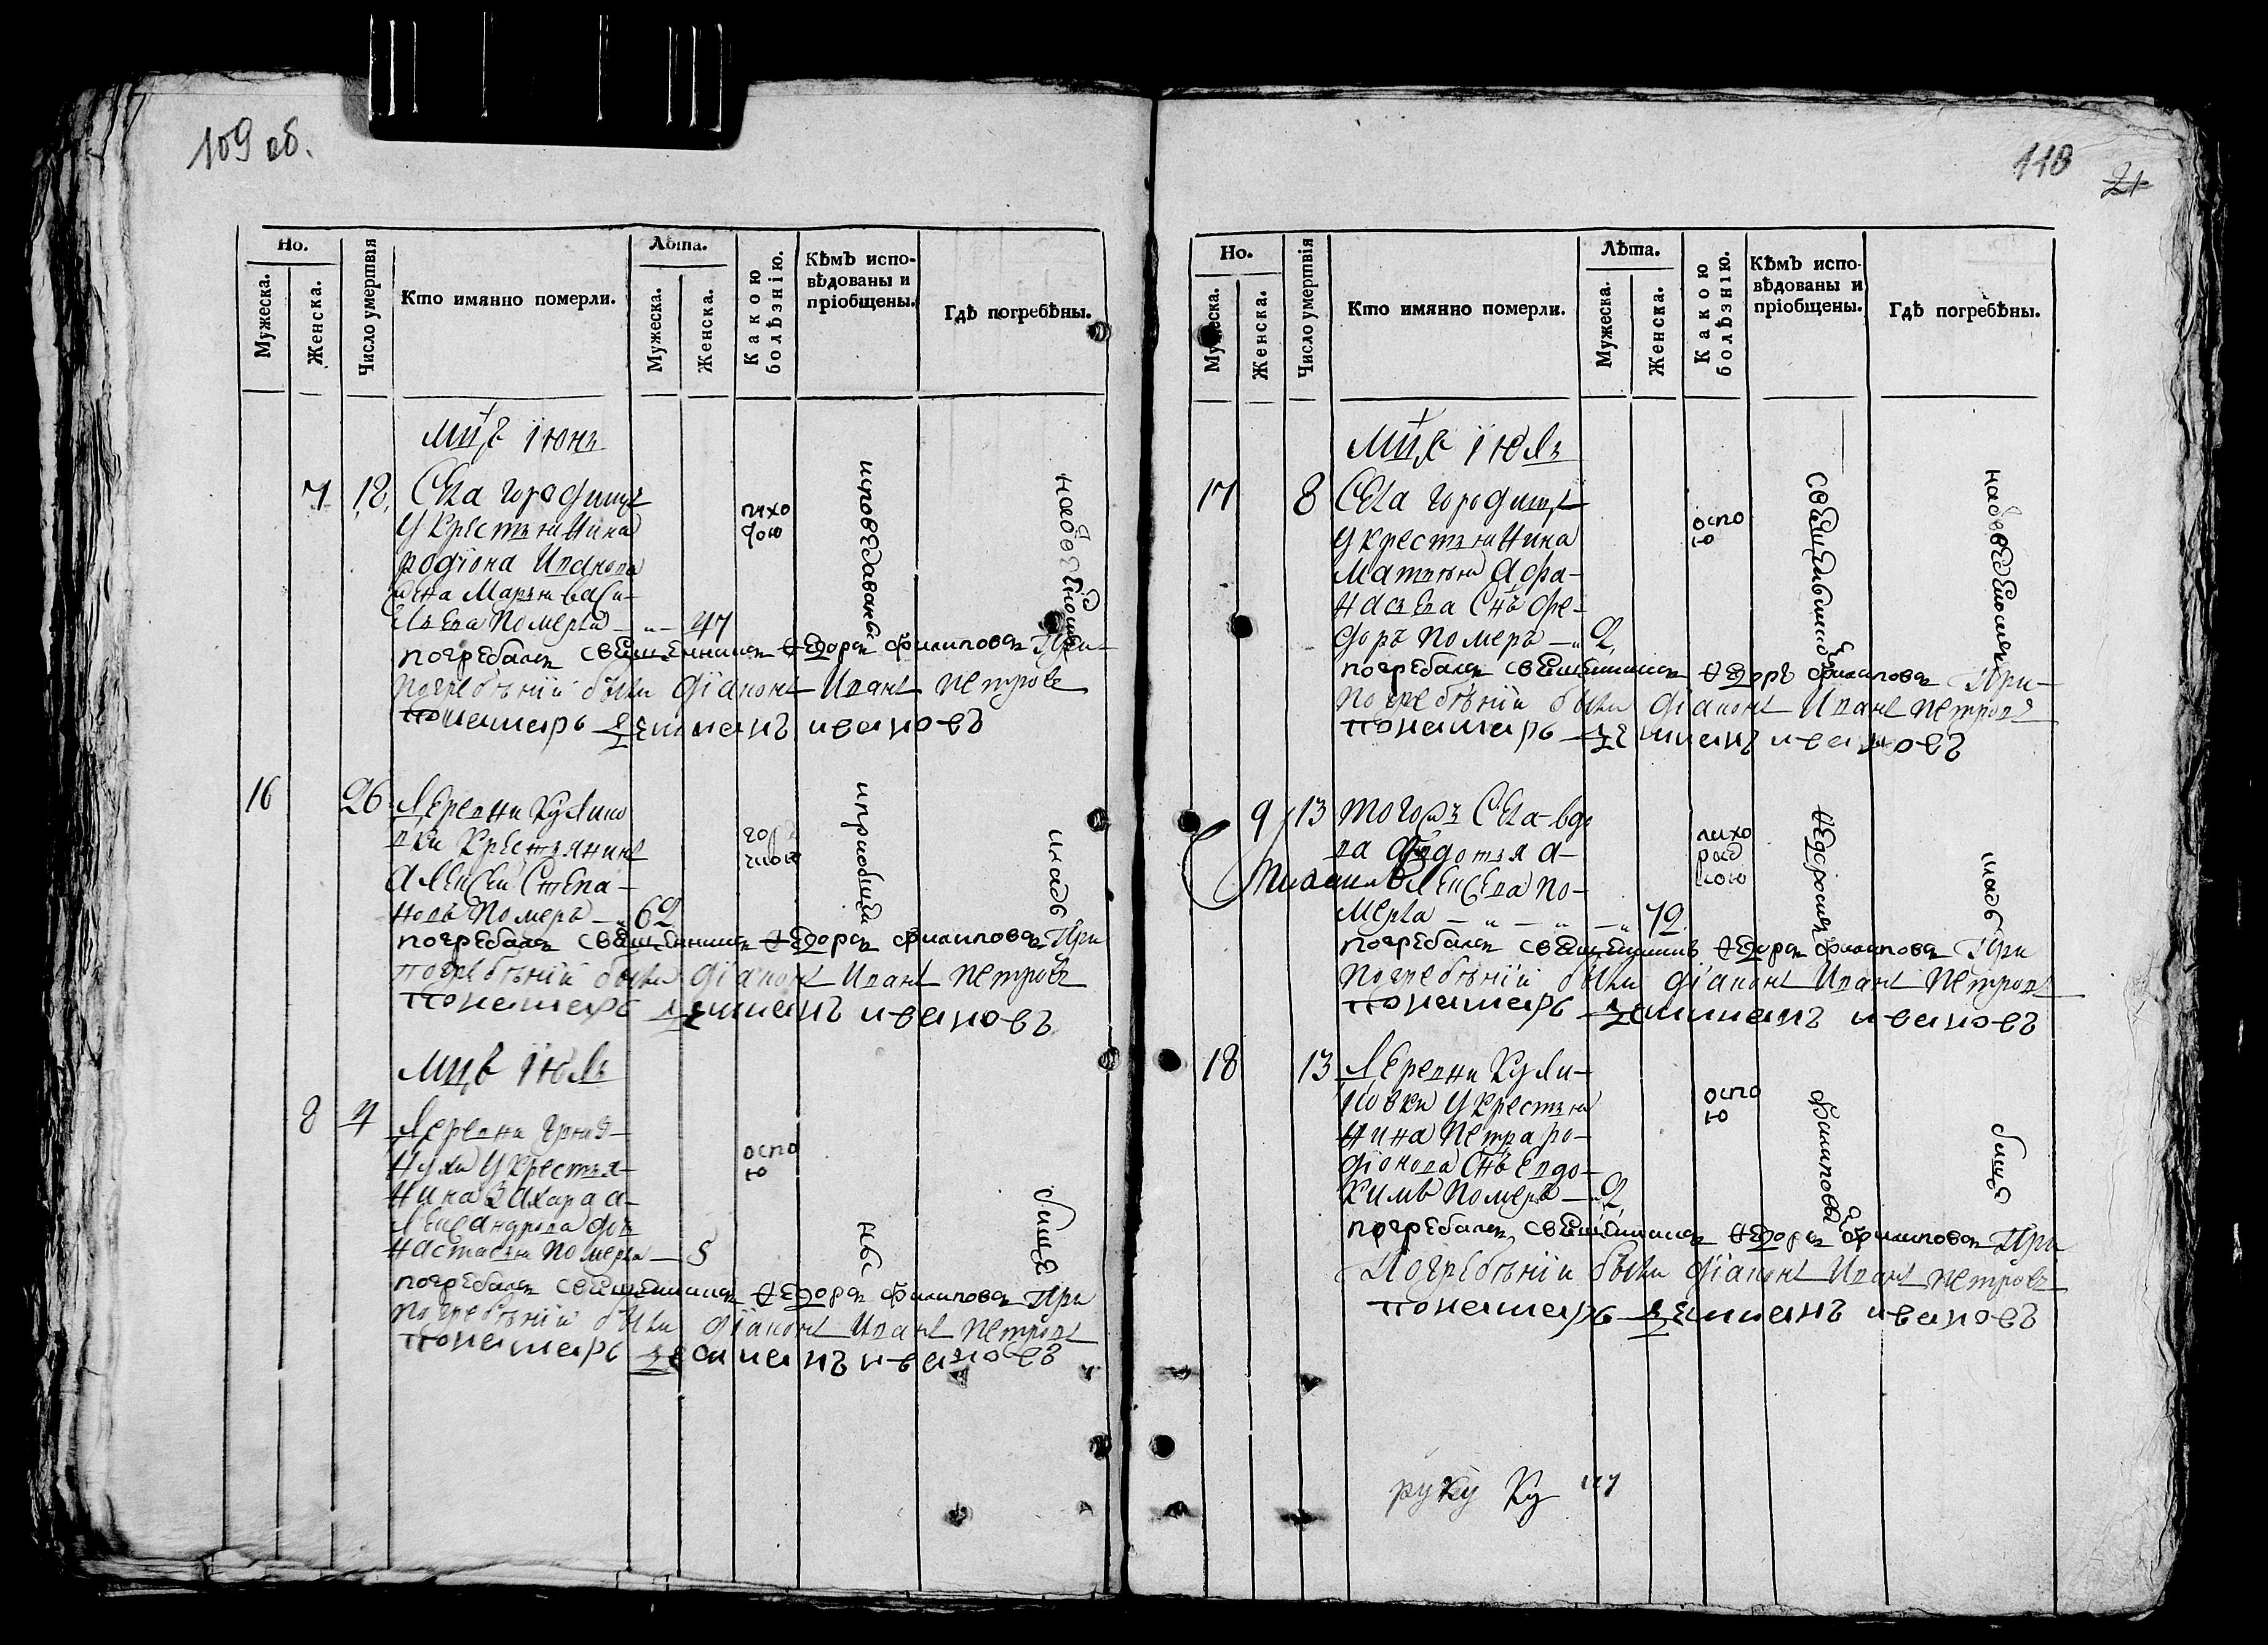 109 об.
Но.
Мужеска.
Женска.
Число умертвія
Кто имянно померли.
Лѣта.
Мужеска.
Женска.
Какою болѣзнію.
Кѣмъ испо-
вѣдованы и
пріобщены.
Гдѣ погребѣны.
Мцъ Iюнь
7 18 Села Городища
у крестьянина
Родiона Иванова
жена Марья Васи-
льева померла — 47
лихо
дою
исповѣдаваны
наоведенномъ
погребалъ священникъ Ѳедоръ Филиповъ При
погребѣнiи были дiаконъ Иванъ Петровъ
пономарь Демианъ Ивановъ
16 26 Деревни Кулико
вки крестьянинъ
Алексей Степа-
новъ померъ — 62
горя
чкою
и приобщи
кладъ
погребалъ священникъ Ѳедоръ Филиповъ При
погребѣнiи были дiаконъ Иванъ Петровъ
пономарь Демианъ Ивановъ
Мцъ Iюль
8 4 Деревни
у крестья-
нина Захара а-
лександрова дочь
Настасья померла — 5
оспо
ю
ны
бище
погребалъ священникъ Ѳедоръ Филиповъ При
погребѣнiи были дiаконъ Иванъ Петровъ
пономарь Демианъ Ивановъ
110
21
Но.
Мужеска.
Женска.
Число умертвія
Кто имянно померли.
Лѣта.
Мужеска.
Женска.
Какою болѣзнію.
Кѣмъ испо-
вѣдованы и
пріобщены.
Гдѣ погребѣны.
Мцъ Iюль
17 8 Села Городища
у крестьянина
Матвѣя Афа-
насьева снъ Фе-
доръ померъ — 2
оспо
ю
священникомъ
наоведенномъ
погребалъ священникъ Ѳедоръ Филиповъ При
погребѣнiи были дiаконъ Иванъ Петровъ
пономарь Демианъ Ивановъ
9 13 Тогожъ села вдо
ва Федотья а-
лексева по-
мерла — 72
лихо
рад
кою
Ѳедоромъ
кладъ
погребалъ священникъ Ѳедоръ Филиповъ При
погребѣнiи были дiаконъ Иванъ Петровъ
пономарь Демианъ Ивановъ
18 13 Деревни Кули-
ковки у крестья
нина Петра Ро-
дiонова снъ Евдо-
кимъ померъ — 2
оспо
ю
Филиповы
бище
погребалъ священникъ Ѳедоръ Филиповъ При
погребѣнiи были дiаконъ Иванъ Петровъ
пономарь Демианъ Ивановъ
руку Ку